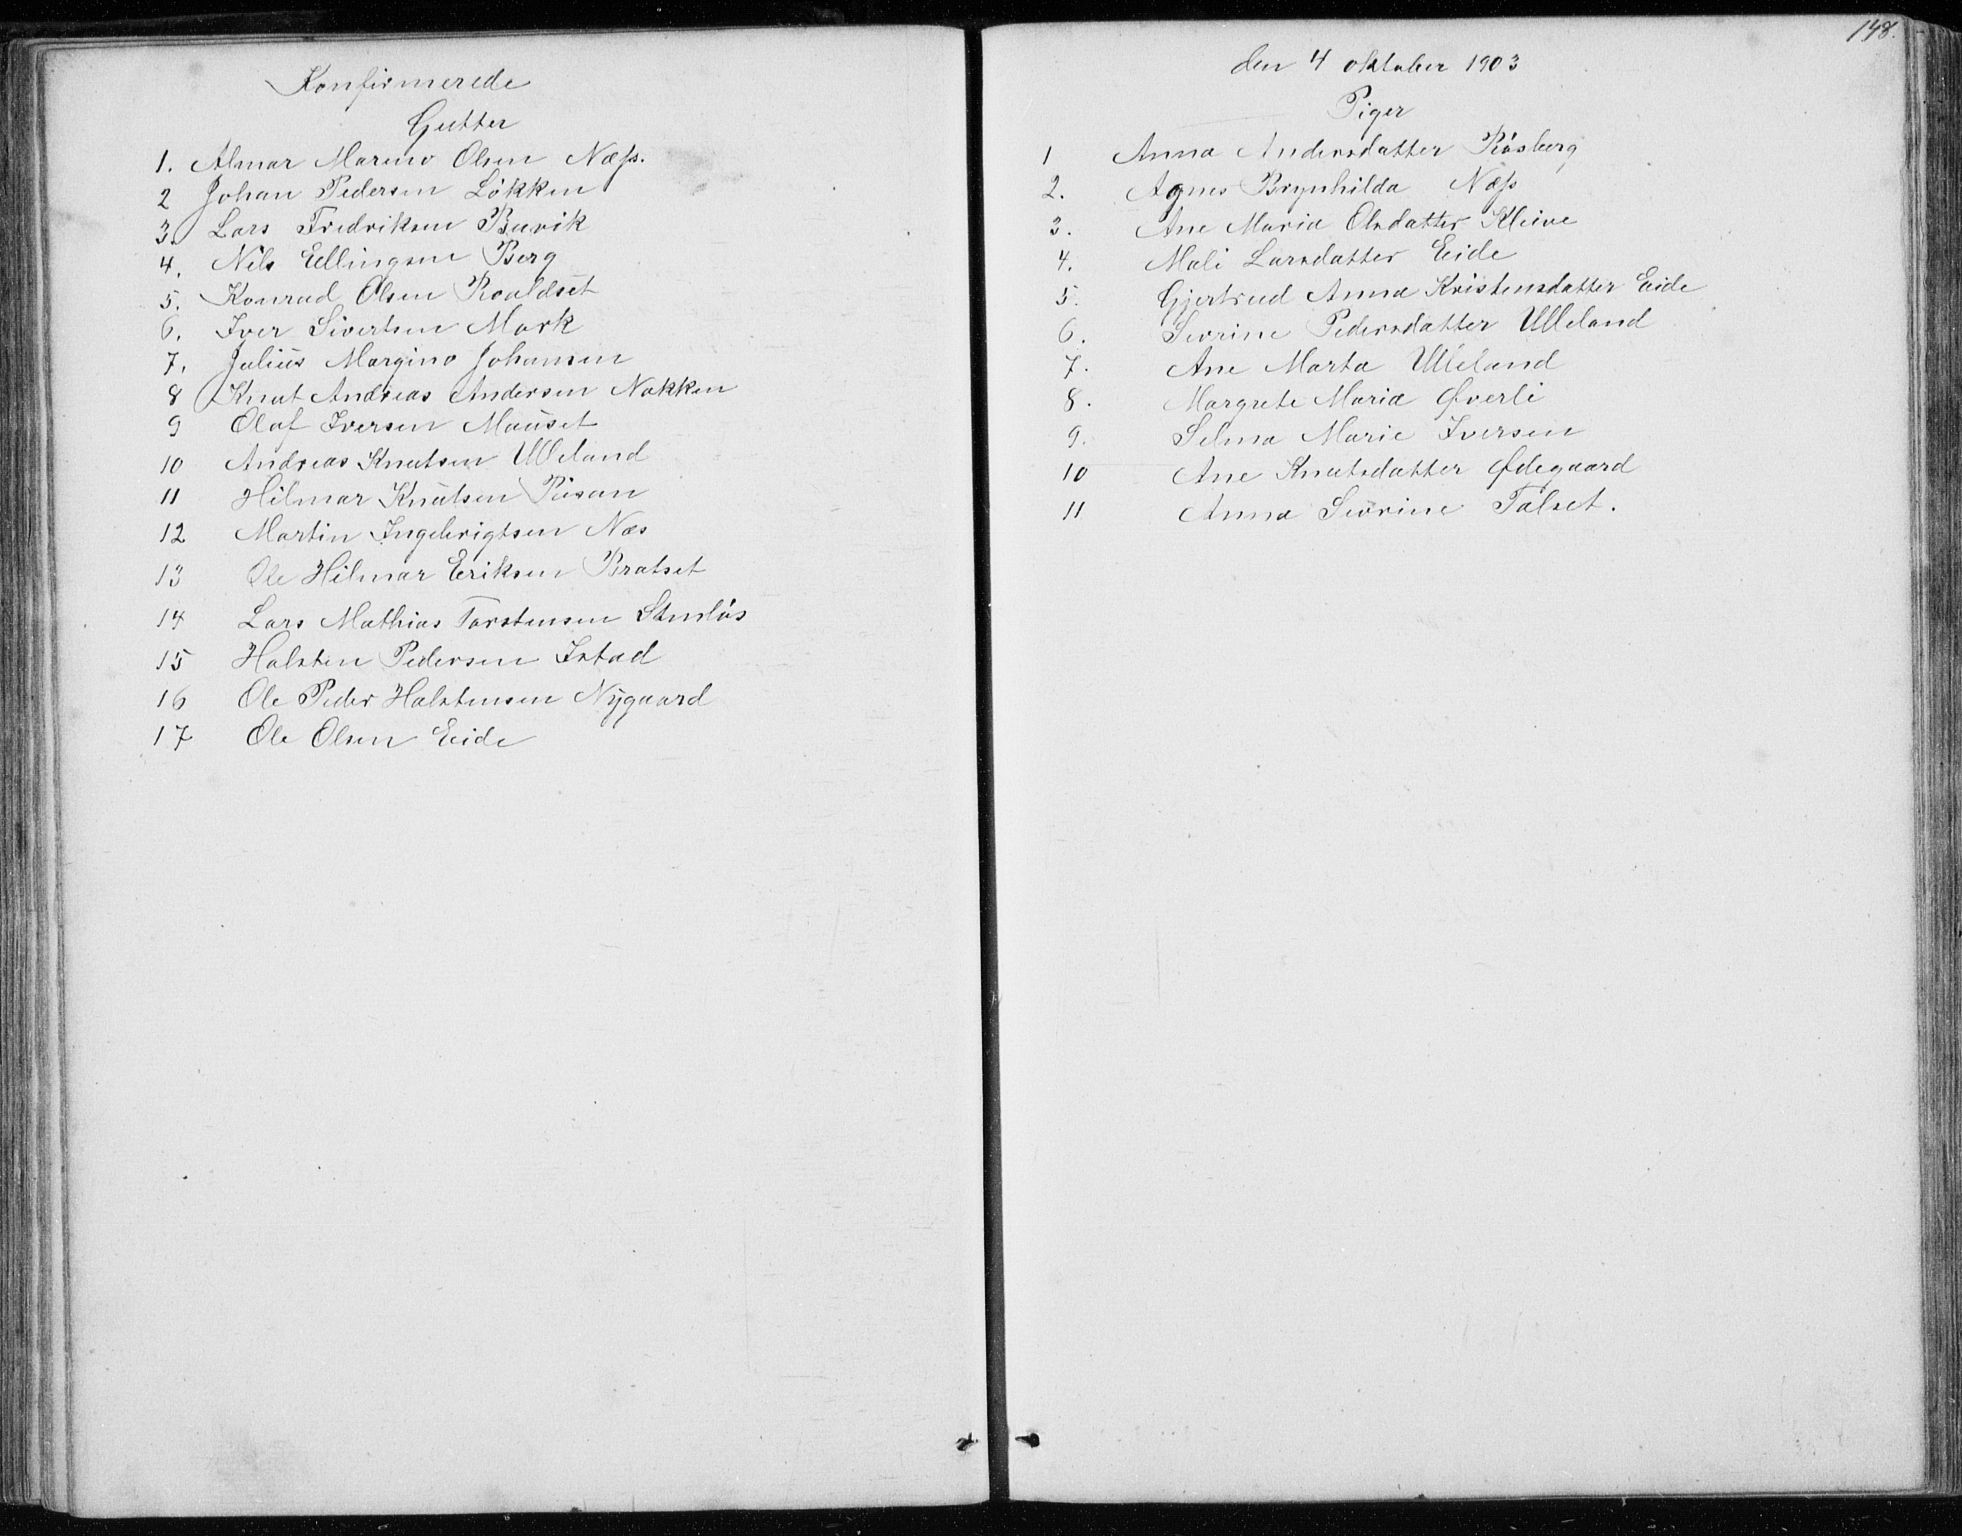 Konfirmerede
Gutter
1. Almar Marino Olsen Næss.
2 Johan Pedersen Løkken
3. Lars Fredriksen Buvik
4. Nils Ellingsen Berg
5. Konrad Olsen Roaldset
6. Iver Sivertsen Mork
7. Julius Margino Johansen
8 Knut Andreas Andersen Nakken
9 Olaf Iversen Mauset
10 Andreas Knutsen Ulleland
11 Hilmar Knutsen
12 Martin Ingebrigtsen Næs
13 Ole Hilmar Eriksen Bratset
14 Lars Mathias Torstensen Stenløs
15 Halsten Pedersen Istad
16 Ole Peder Halstensen Nygaard
17 Ole Olsen Eide
148.
den 4 oktober 1903
Piger
1 Anna Andersdatter Røsberg
2. Agnes Brynhilda Næss
3. Ane Maria Olsdatter Kleive
4. Mali Larsdatter Eide
5. Gjertrud Anna Kristensdatter Eide
6. Sivrine Pedersdatter Ulleland
7. Ane Marta Ulleland
8. Margrete Maria Øverli
9. Selma Marie Iversen
10 Ane Knutsdatter Ødegaard
11 Anna Sivrine Talset.